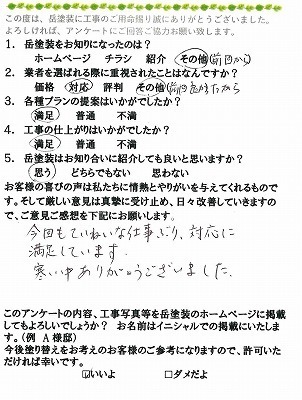 この度は、岳塗装に工事のご用命賜り誠にありがとうございました。
よろしければ、アンケートにご回答ご協力お願い致します。
1. 岳塗装をお知りになったのは?
ホームページ チラシ 紹介 その他(前回から)
2. 業者を選ばれる際に重視されたことはなんですか?
価格 対応 評判 その他(前回もよかったから
3. 各種プランの提案はいかがでしたか?
満足 普通 不満
4. 工事の仕上がりはいかがでしたか?
満足 普通 不満
5. 岳塗装はお知り合いに紹介しても良いと思いますか?
思う どちらでもない 思わない
お客様の喜びの声は私たちに情熱とやりがいを与えてくれるものです。
そして厳しい意見は真摯に受け止め、日々改善していきますので、ご意見ご感想を下記にお願いします。
今回もていねいな仕事ぶり、対応に
満足しています。
寒い中ありがとうございました。
このアンケートの内容、工事写真等を岳塗装のホームページに掲載
してもよろしいでしょうか? お名前はイニシャルでの掲載にいたしま
す。(例 A様邸)
今後塗り替えをお考えのお客様のご参考になりますので、許可いた
だければ幸いです。
☑いいよ □ダメだよ